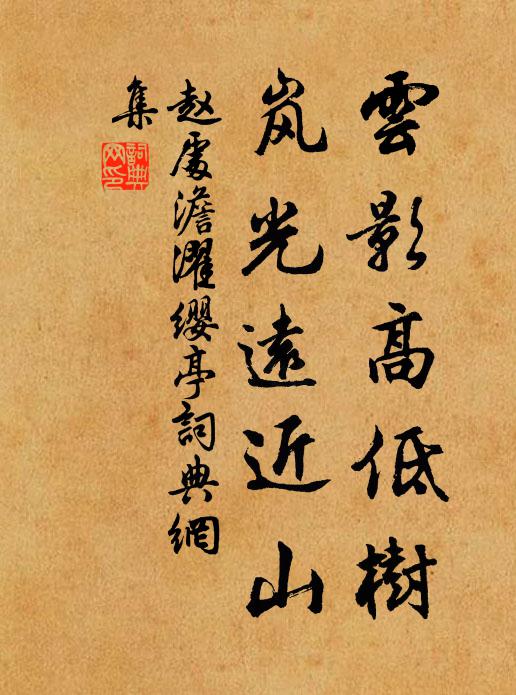 雲影高低樹
岚光遠近山
赵處澹濯纓亭詞典網
集
詞典
网印